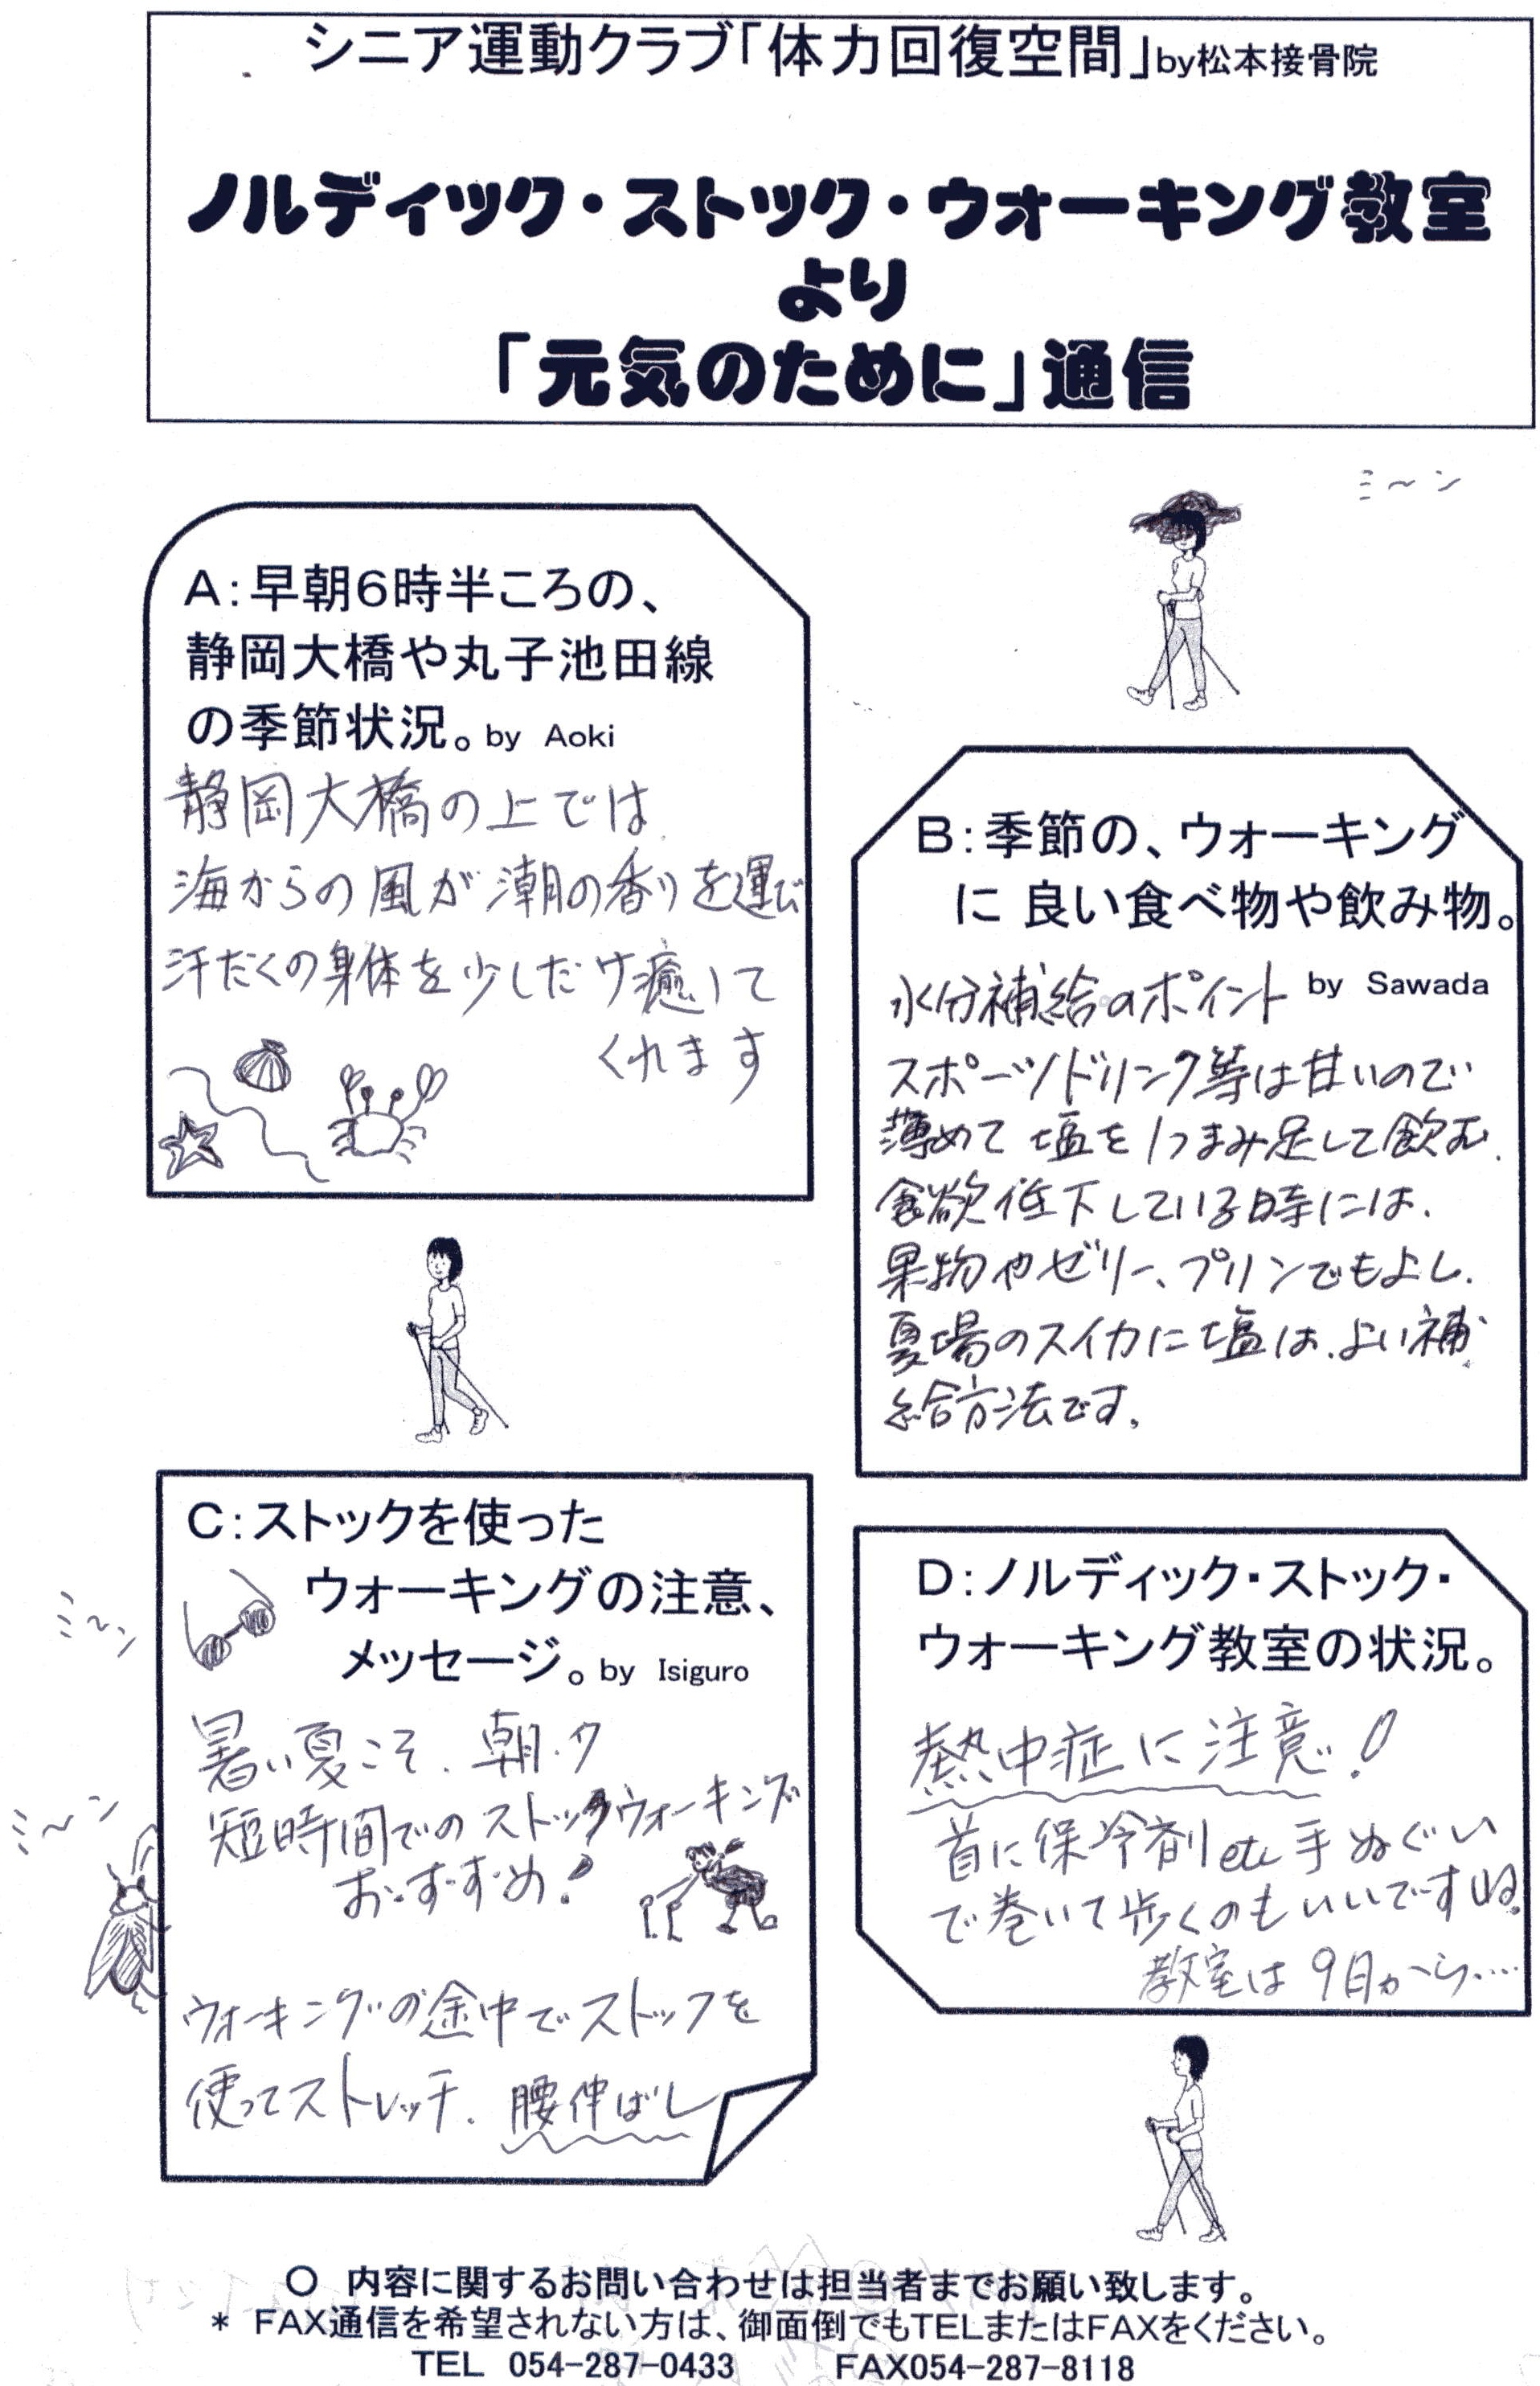 シニア運動クラブ「体力回復空間」by松本接骨院
ノルディック・ストック・ウォーキング教室
より
「元気のために」通信
ミ〜ン
A:早朝6時半ころの、
静岡大橋や丸子池田線
の季節状況。by Aoki
静岡大橋の上では
海からの風が潮の香りを運び
汗だくの身体を少しだけ癒して
くれます
B:季節の、ウォーキング
に 良い食べ物や飲み物。
by Sawada
水分補給のポイント
スポーツドリンク等は甘いので
薄めて 塩を1つまみ足して飲む.
食欲低下している時には.
果物やゼリー、プリンでもよし.
夏場のスイカに塩は.よい補
給方法です.
C:ストックを使った
ウォーキングの注意、
メッセージ。by Isiguro
暑い夏こそ.朝・夕
短時間でのストックウォーキング
おすすめ!
ウォーキングの途中でストックを
使ってストレッチ.腰伸ばし
ミ〜ン
ミ〜ン
D:ノルディック・ストック・
ウォーキング教室の状況。
熱中症に注意!
首に保冷剤etc手ぬぐい
で巻いて歩くのもいいですね.
教室は9月から....
○ 内容に関するお問い合わせは担当者までお願い致します。
* FAX通信を希望されない方は、御面倒でもTELまたはFAXをください。
TEL 054-287-0433 FAX054-287-8118